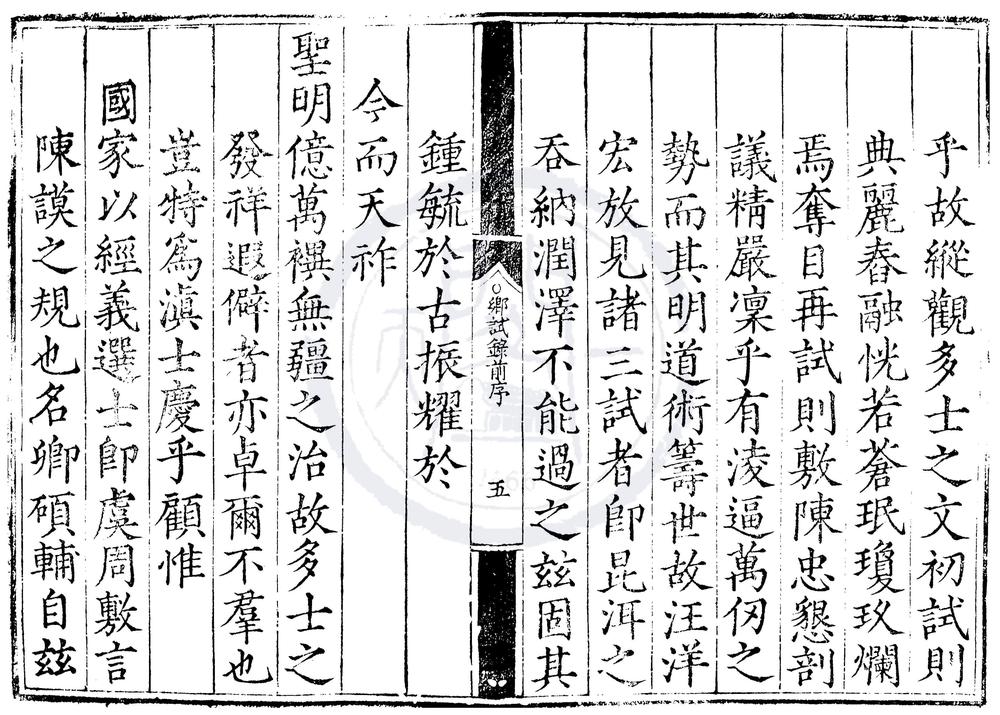 乎故縱觀多士之文初試則
典麗春融恍若蒼珉瓊玖爛
焉奪目再試則敷陳忠懇剖
議精嚴凜乎有淩逼萬仞之
勢而其明道術籌世故汪洋
宏放見諸三試者卽昆洱之
吞納潤澤不能過之玆固其
鄉試錄前序
五
鍾毓於古振耀於
今而天祚
聖明億萬禩無疆之治故多士之
發祥遐僻者亦卓爾不羣也
豈特爲滇士慶乎顧惟
國家以經義選士卽虞周敷言
陳謨之規也名卿碩輔自玆